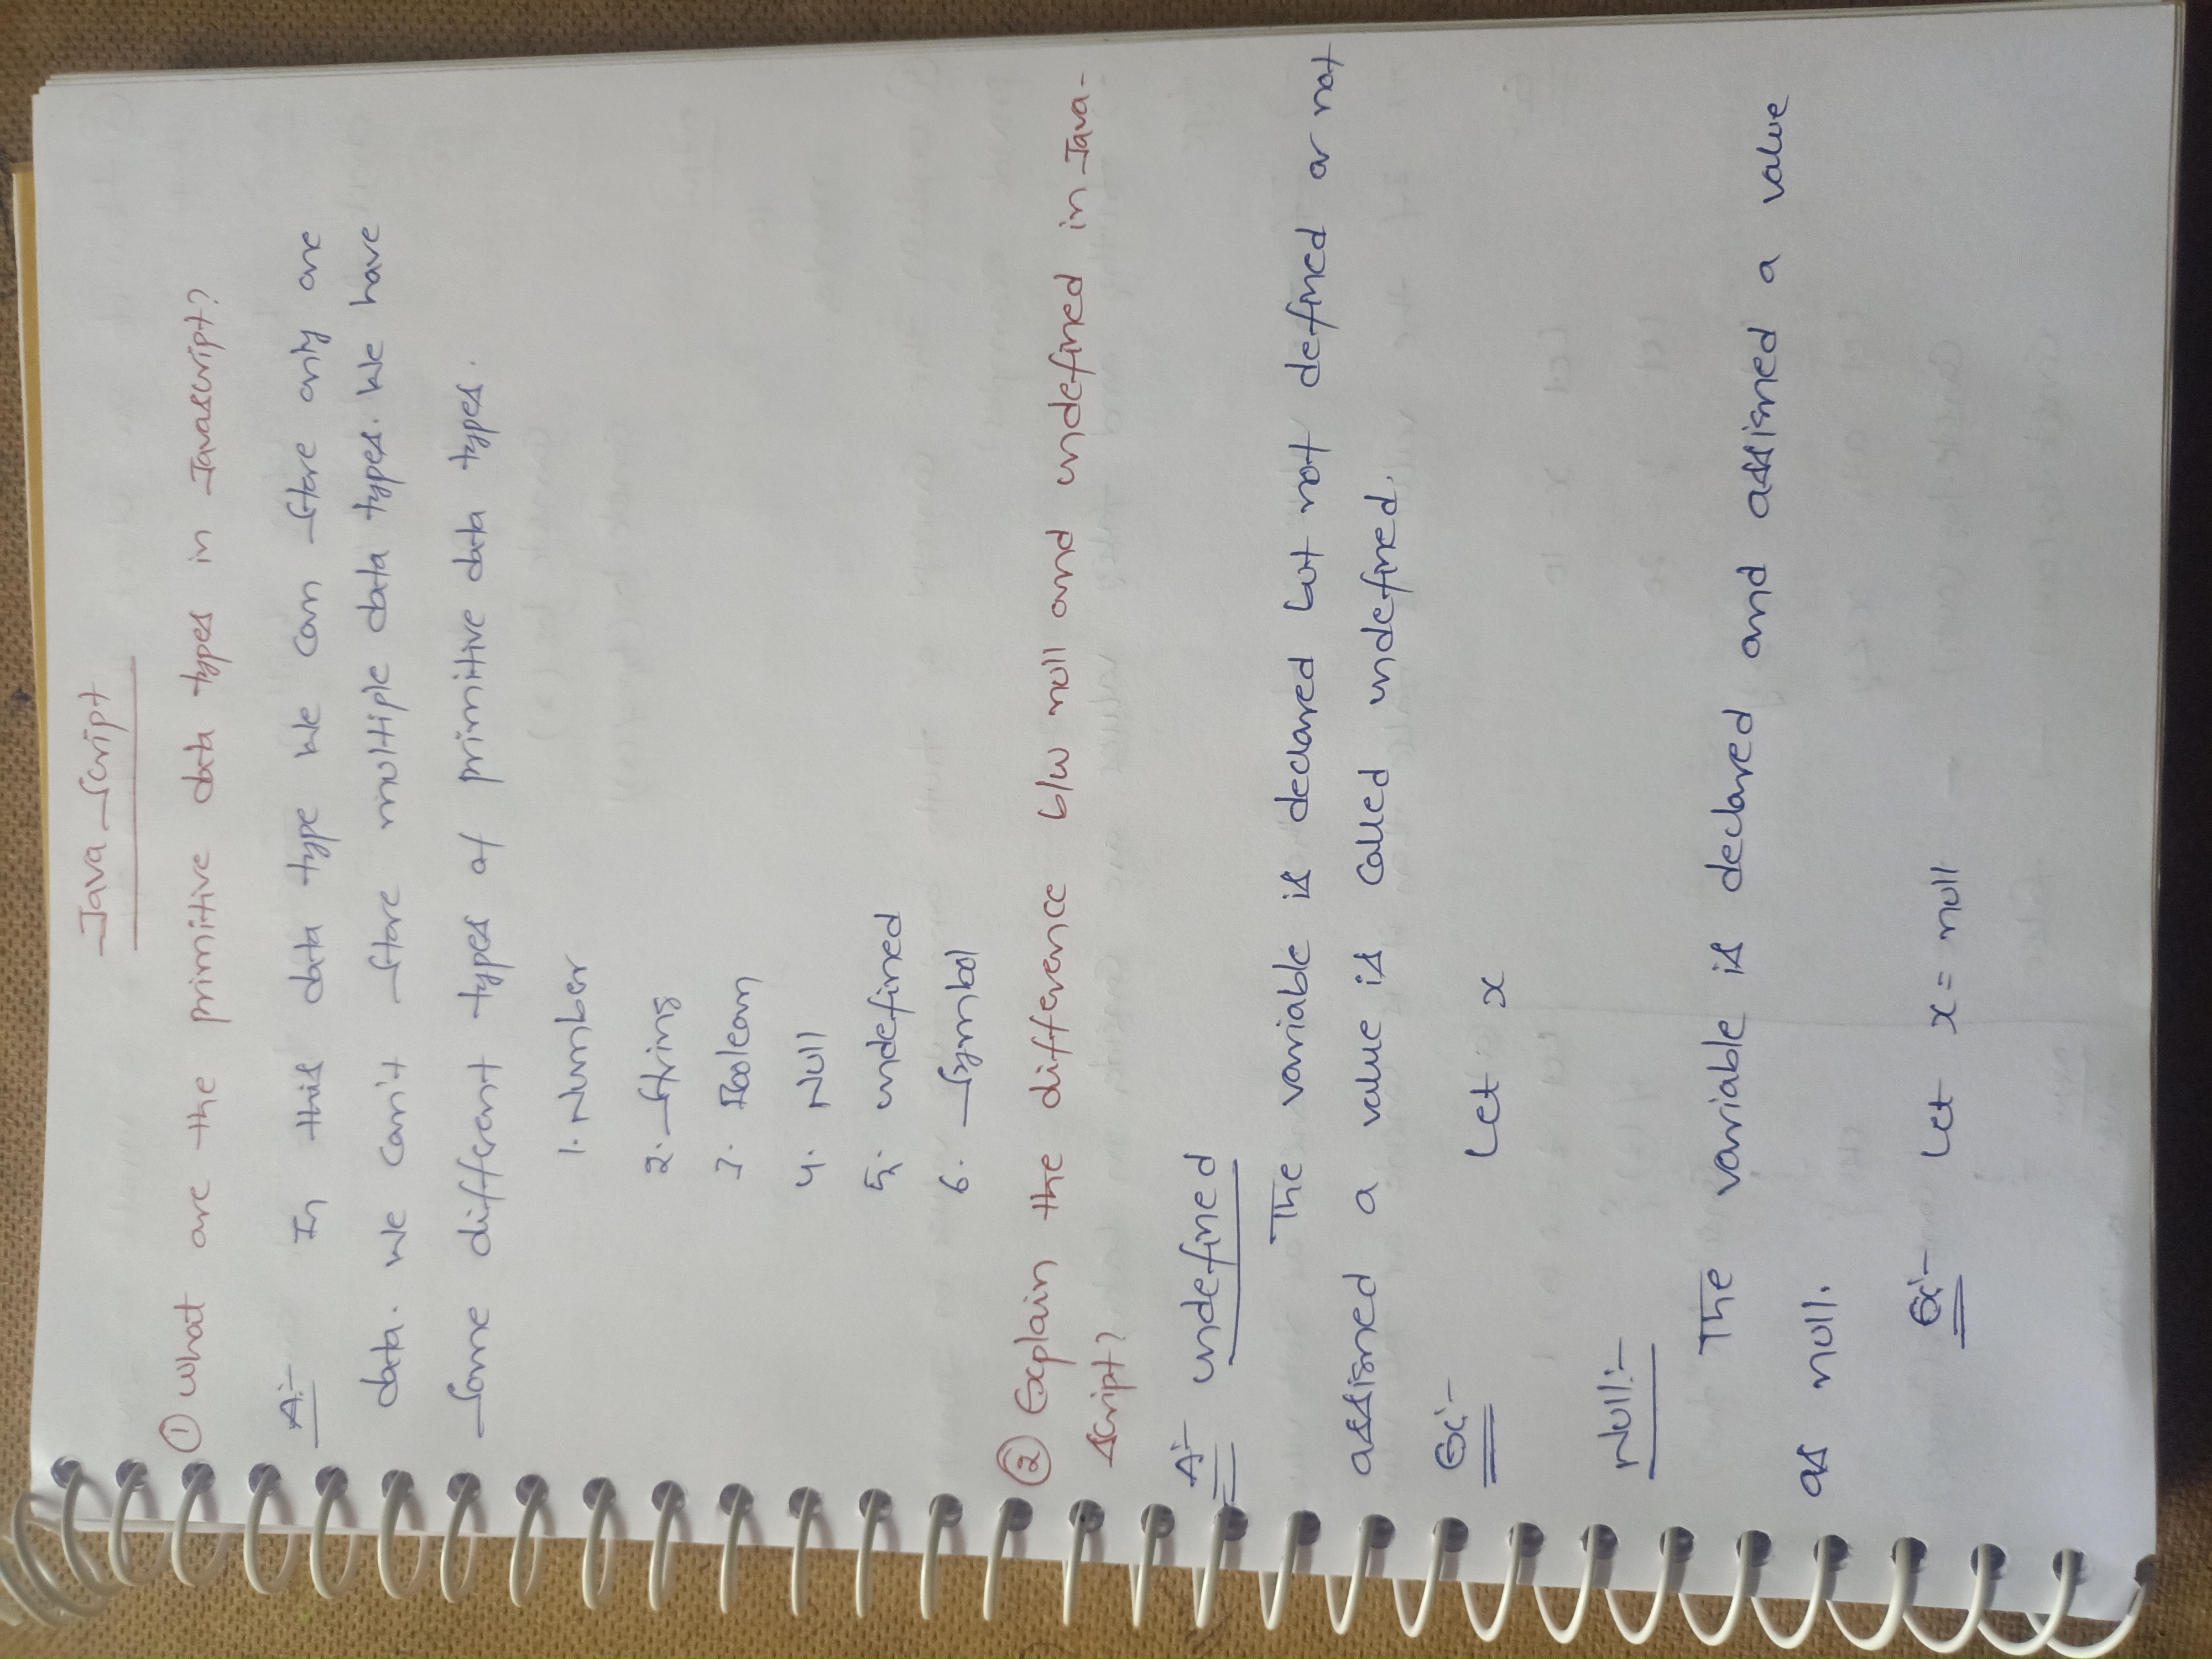 Java Script
① What are the primitive data types in Javascript?
A:- In this data type We can store only one
data. We can't store multiple data types. We have
Some different types of primitive data types.
1. Number
2. String
3. Boolean
4. Null
5. undefined
6. Symbol
② Explain the difference b/w null and undefined in Java-
script?
A:- undefined
The variable is declared but not defined or not
assigned a value is called undefined.
Ex:- Let x
Null:-
The variable is declared and assigned a value
as null.
Ex:- Let x = null